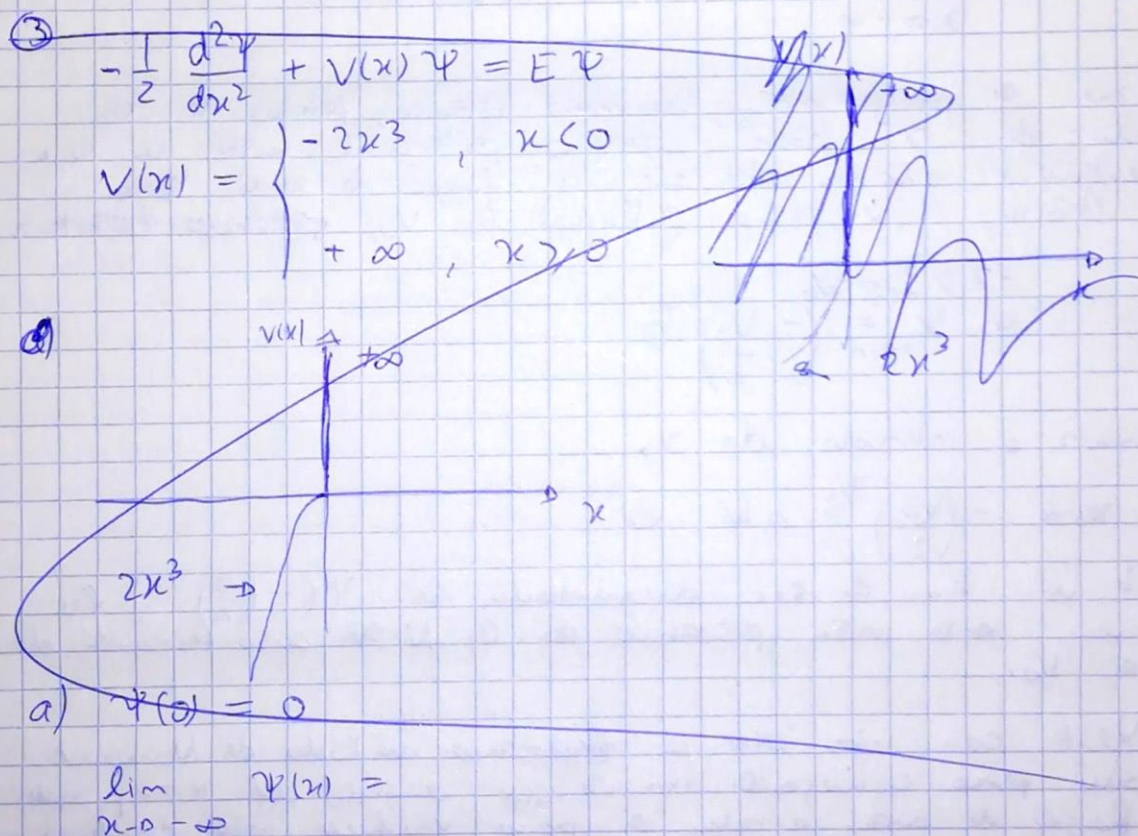 3
-1/2 d²Ψ/dx² + V(x) Ψ = E Ψ
V(x) = { -2x³ , x<0
+∞ , x≥0
V(x)
+∞
x
2x³
V(x)
+∞
x
2x³
a) Ψ(0) = 0
lim x→-∞ Ψ(x) =